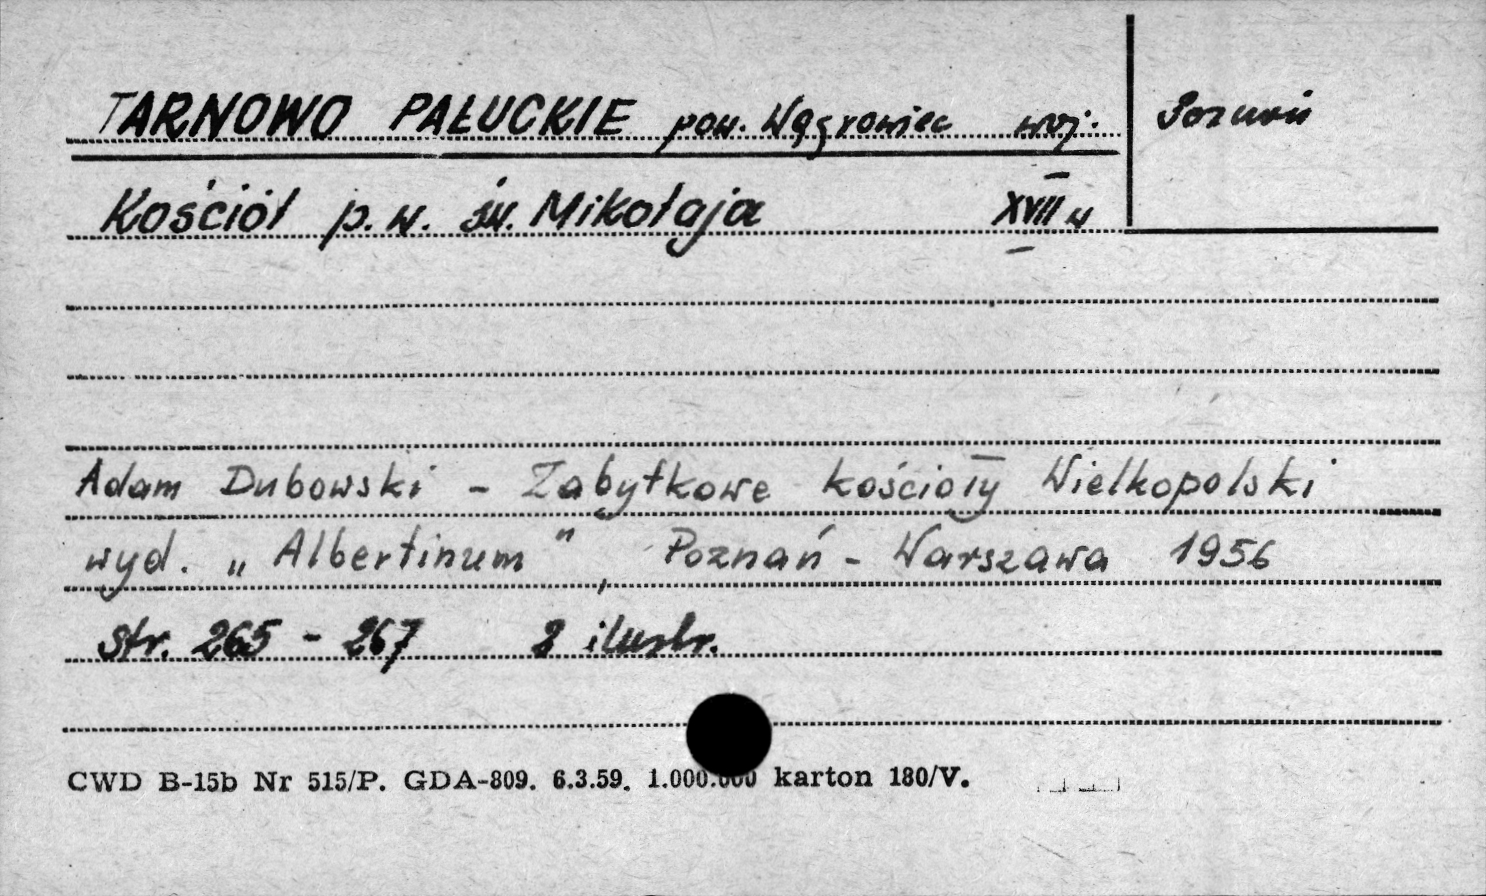 TARNOWO PAŁUCKIE pow. Wągrowiec woj. Poznań
Kościół p.w. św. Mikołaja XVII w
Adam Dubowski - Zabytkowe kościoły Wielkopolski
wyd. „Albertinum", Poznań - Warszawa 1956
str. 265 - 267 2 ilustr.
CWD B-15b Nr 515/P. GDA-809. 6.3.59. 1.000.000 karton 180/V.